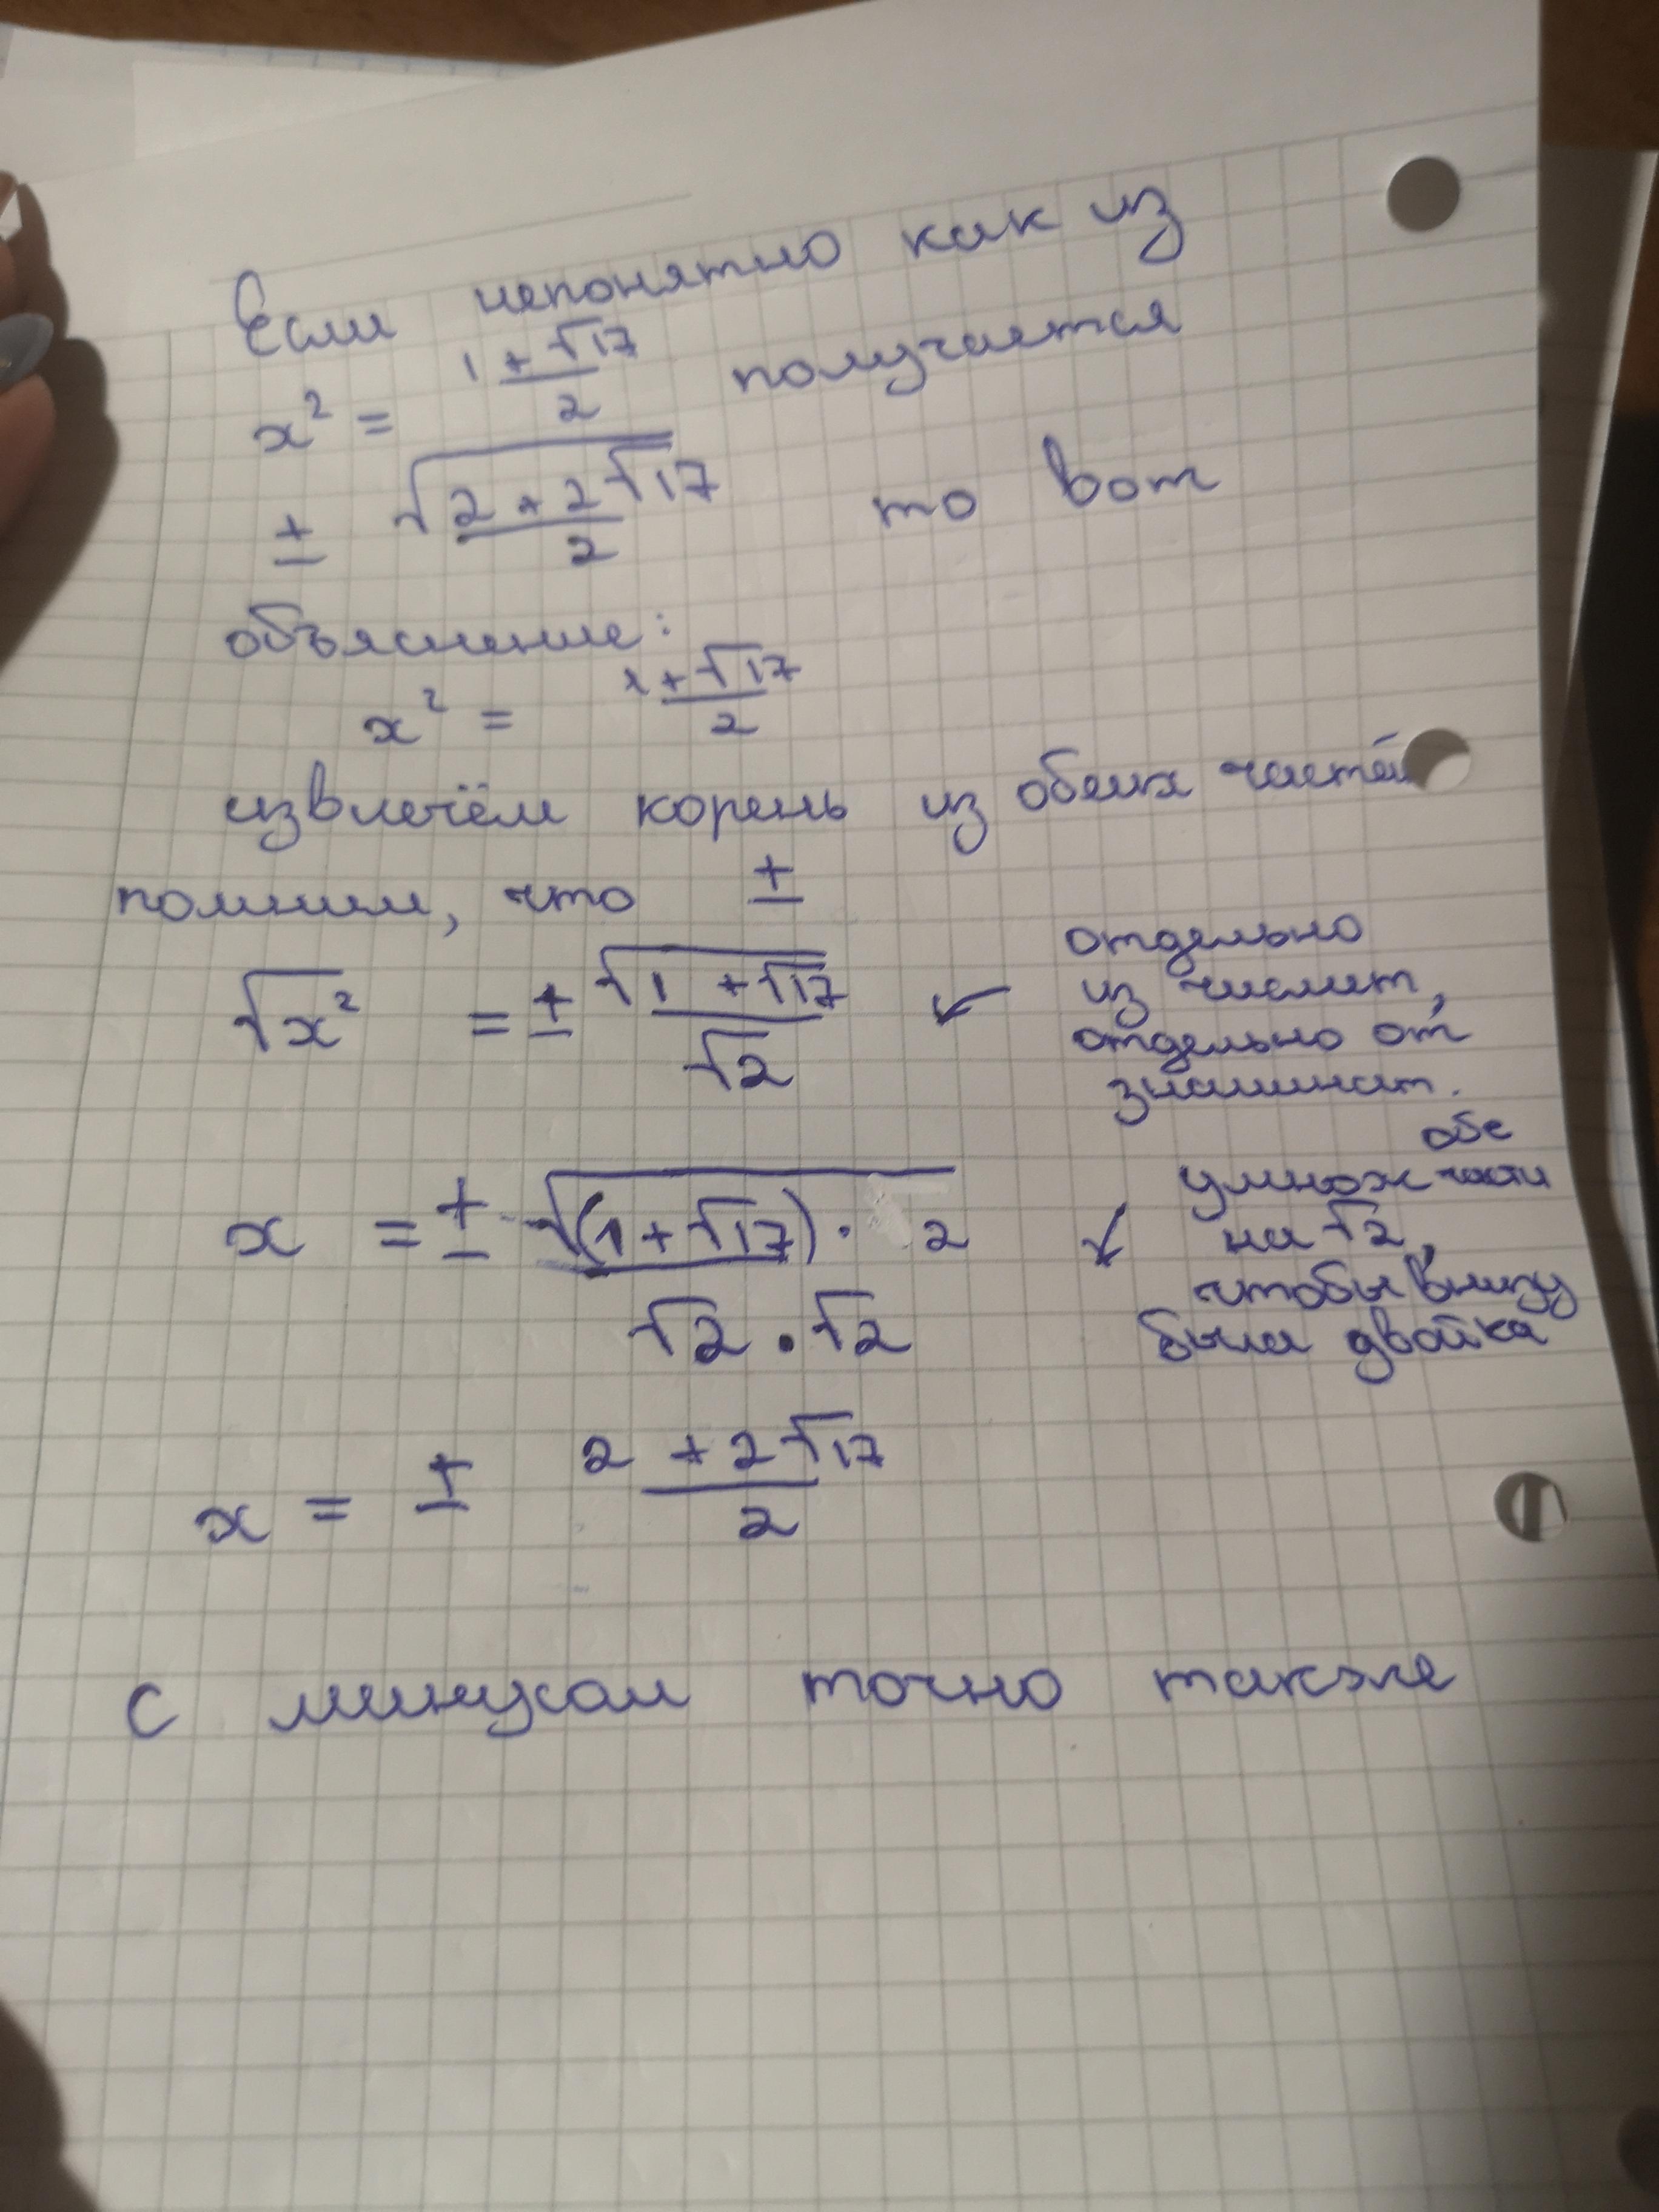 Если непонятно как из
x² = (1 + √17)/2 получается
± √(2 + 2√17)/2 то вот
объяснение:
x² = (1 + √17)/2
извлечём корень из обеих частей
помним, что ±
√x² = ± √(1 + √17)/√2 ← отдельно
из числит,
отдельно от
знаминат.
x = ± √((1 + √17) · 2)/(√2 · √2) ↙ умнож обе части
на √2,
чтобы внизу
была двойка
x = ± (2 + 2√17)/2
с минусом точно также